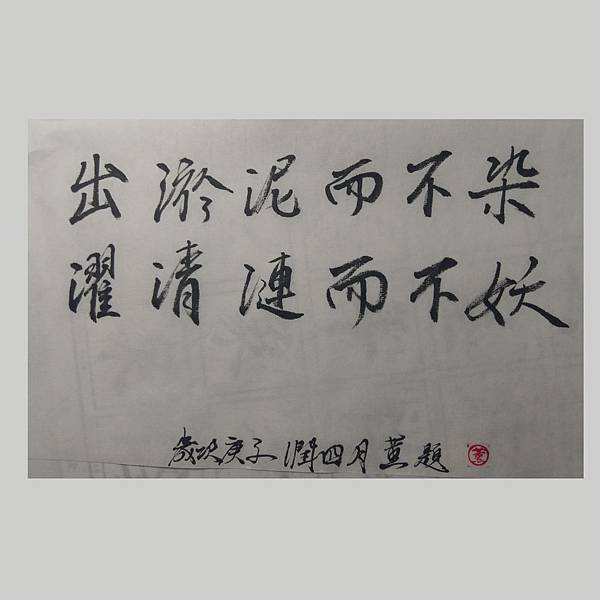 出淤泥而不染
濯清漣而不妖
歲次庚子潤四月 題